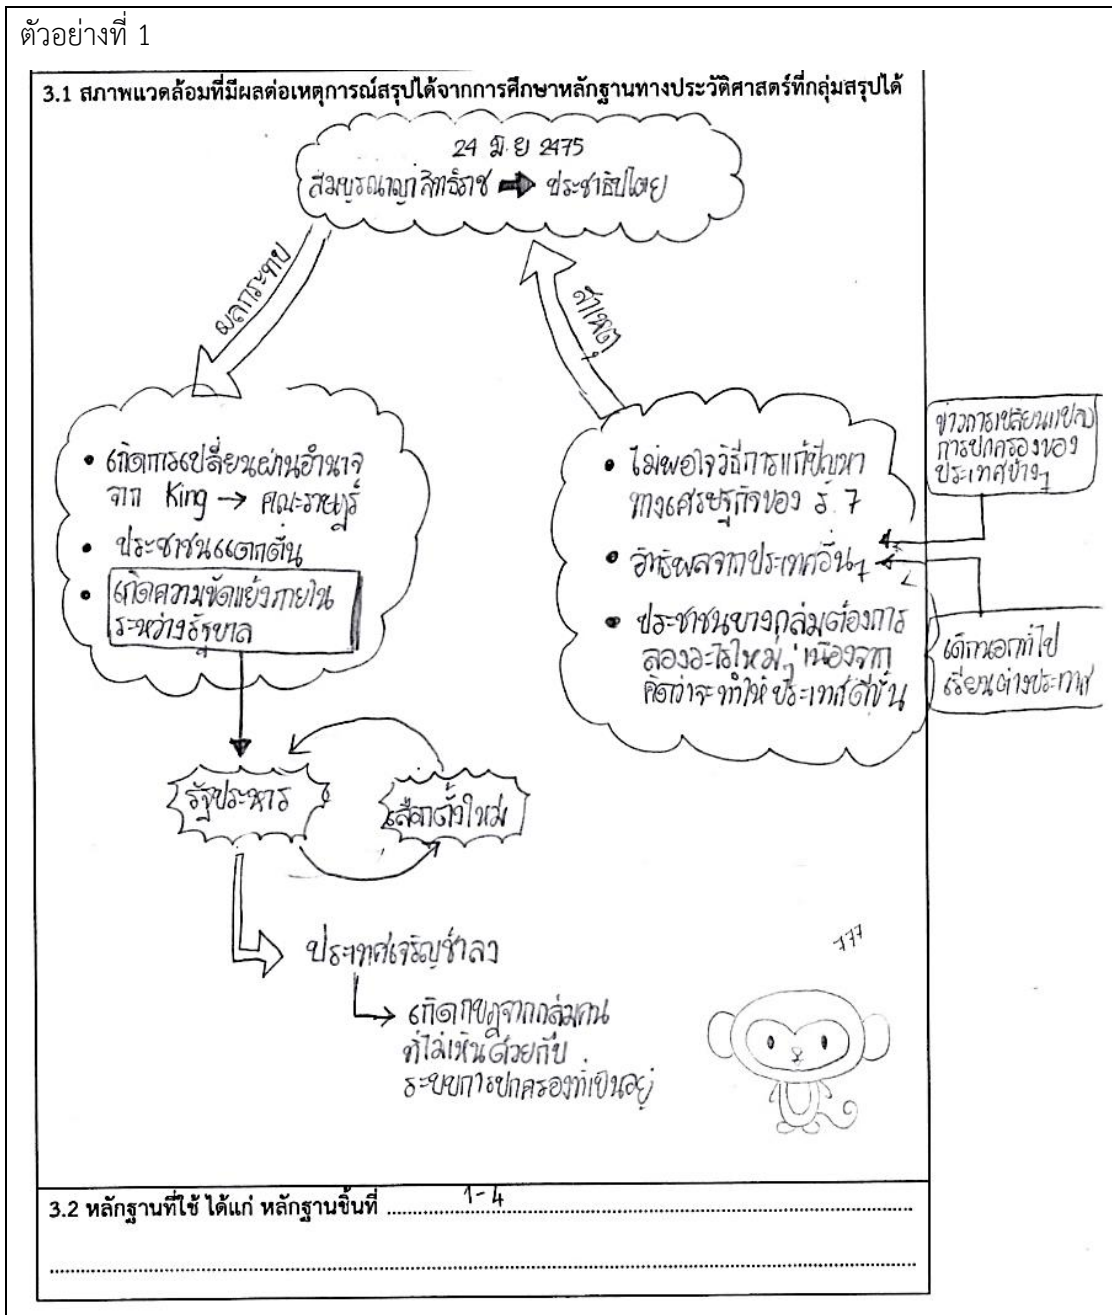 ตัวอย่างที่ 1
3.1 สภาพแวดล้อมที่มีผลต่อเหตุการณ์สรุปได้จากการศึกษาหลักฐานทางประวัติศาสตร์ที่กลุ่มสรุปได้
24 มิ.ย 2475
สมบูรณาญาสิทธิราช → ประชาธิปไตย
ผลกระทบ
สาเหตุ
• เกิดการเปลี่ยนผ่านอำนาจ
จาก King → คณะราษฎร์
• ประชาชนแตกตื่น
• เกิดความขัดแย้งภายใน
ระหว่างรัฐบาล
• ไม่พอใจวิธีการแก้ปัญหา
ทางเศรษฐกิจของ ร. 7
• อิทธิพลจากประเทศอื่นๆ
• ประชาชนบางกลุ่มต้องการ
ลองอะไรใหม่ๆ เนื่องจาก
คิดว่าจะทำให้ประเทศดีขึ้น
ข่าวการเปลี่ยนแปลง
การปกครองของ
ประเทศข้างๆ
เด็กนอกที่ไป
เรียนต่างประเทศ
รัฐประหาร
เลือกตั้งใหม่
ประเทศเจริญช้าลง
เกิดกบฏจากกลุ่มคน
ที่ไม่เห็นด้วยกับ
ระบบการปกครองที่เป็นอยู่
3.2 หลักฐานที่ใช้ ได้แก่ หลักฐานชิ้นที่ 1-4